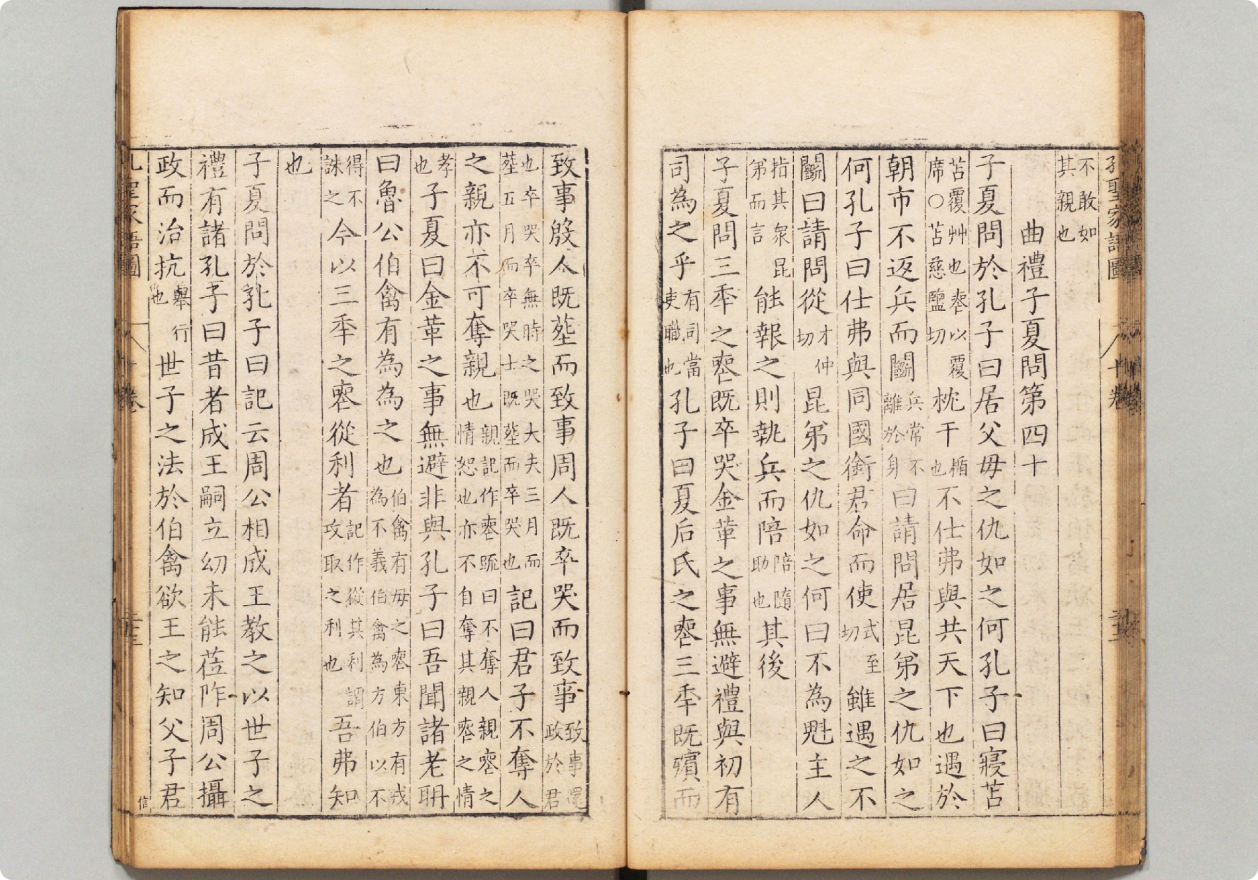 孔聖家語圖 十卷
不敢如
其親也
曲禮子夏問第四十
子夏問於孔子曰居父母之仇如之何孔子曰寢苫
苫覆艸也䘮以覆
席○苫慈鹽切
枕干
楯
也
不仕弗與共天下也遇於
朝市不返兵而鬭
兵常不
離於身
曰請問居昆弟之仇如之
何孔子曰仕弗與同國銜君命而使
式至
切
雖遇之不
鬭曰請問從
才仲
切
昆弟之仇如之何曰不為魁主人
指其衆昆
弟而言
能報之則執兵而陪
陪隨
助也
其後
子夏問三年之䘮既卒哭金革之事無避禮與初有
司為之乎
有司當
吏職也
孔子曰夏后氏之䘮三年既殯而
致事殷人既塟而致事周人既卒哭而致事
致事還
政於君
也卒哭卒無時之哭大夫三月而
塟五月而卒哭士既塟而卒哭也
記曰君子不奪人
之親亦不可奪親也
親記作䘮疏曰不奪人親䘮之
情恕也亦不自奪其親䘮之情
孝
也
子夏曰金革之事無避非與孔子曰吾聞諸老聃
曰魯公伯禽有為為之也
伯禽有母之䘮東方有戎
為不義伯禽為方伯以不
得不
誅之
今以三年之䘮從利者
記作從其利謂
攻取之利也
吾弗知
也
子夏問於孔子曰記云周公相成王教之以世子之
禮有諸孔子曰昔者成王嗣立幼未能莅阼周公攝
政而治抗
舉
也
行世子之法於伯禽欲王之知父子君
孔聖家語圖 卷
信